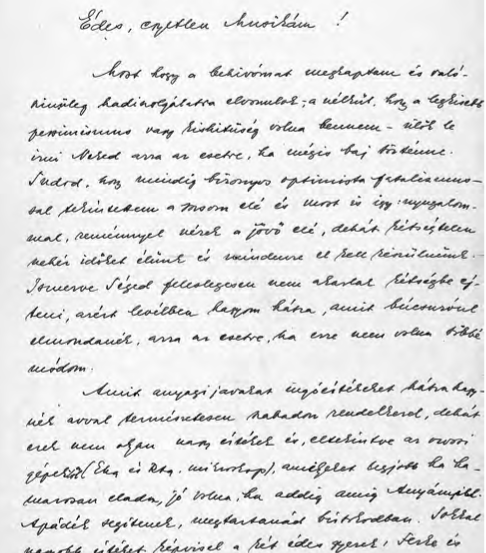 Édes, egyetlen Musikám!
Most hogy a behivómat megkaptam és való-
szinüleg hadiszolgálatra elvonulok; a nélkül, hogy a legkisebb
pessimismus vagy kishitüség volna bennem – ülök le
irni Neked arra az esetre, ha mégis baj történne.
Tudod, hogy mindig bizonyos optimista fatalizmus-
sal tekintettem a sorsom elé és most is így nyugalom-
mal, reménnyel nézek a jövő elé, dehát kétségtelen
nehéz időket élünk és mindenre el kell készülnünk.
Ismerve Téged feleslegesen nem akarlak kétségbe ej-
teni, azért levélben hagyom hátra, amit búcsuzóul
elmondanék, arra az esetre, ha erre nem volna többé
módom.
Amit anyagi javakat ingóértékeket hátra hagy-
nék avval természetesen szabadon rendelkezel, dehát
ezek nem olyan nagy értékek és, eltekintve az orvosi
gépektől (Ekg és Rtg. mikroskop), amelyeket legjobb ha ha-
marosan eladsz, jó volna, ha addig amig Anyámék ill.
Apádék segítenek, megtartanád birtokodban. Sokkal
nagyobb értéket képvisel a két édes gyerek, Terke és